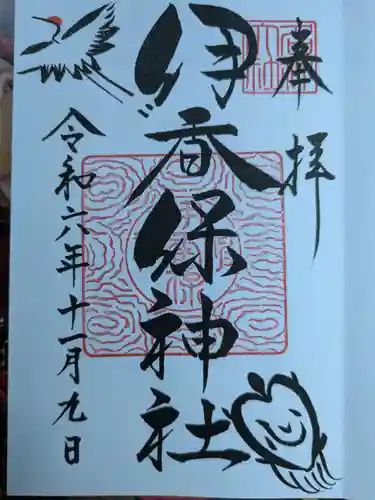 奉拝
伊香保神社
令和六年十一月九日